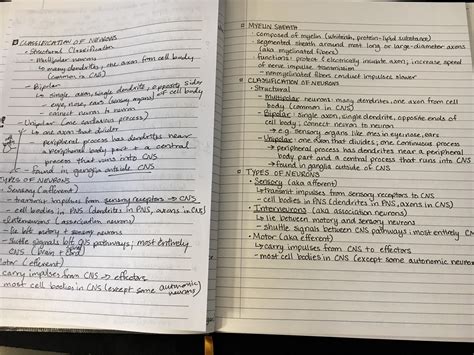 CLASSIFICATION OF NEURONS
• Structural Classification
- Multipolar neurons
↳ many dendrites, one axon from cell body
(common in CNS)
- Bipolar
↳ single axon, single dendrite, opposite sides
of cell body
- eye, nose, ears (sensory organs)
- connect neuron to neuron
- Unipolar (one continuous process)
↳ one axon that divides
- peripheral process has dendrites near
a peripheral body part + a central
process that runs into CNS
- found in ganglia outside CNS
TYPES OF NEURONS
- Sensory (afferent)
- transmit impulses from sensory receptors → CNS
- cell bodies in PNS (dendrites in PNS, axons in CNS)
- Interneurons (association neurons)
lie b/t motor + sensory neurons
- shuttle signals b/t CNS pathways; most entirely
CNS (brain +
Motor (efferent)
carry impulses from CNS → effectors
most cell bodies in CNS (except some autonomic
neurons)
MYELIN SHEATH
• composed of myelin (whiteish, protein-lipid substance)
• segmented sheath around most long or large-diameter axons
(aka myelinated fibers)
• functions: protect & electrically insulate axon; increase speed
of nerve impulse transmission
- nonmyelinated fibers conduct impulses slower
CLASSIFICATION OF NEURONS
• Structural
- Multipolar neurons: many dendrites; one axon from cell
body (common in CNS)
- Bipolar: single axon, single dendrite, opposite ends of
cell body; connect neuron to neuron
→ e.g. sensory organs like in eye, nose, ears
- Unipolar: one axon that divides; one continuous process
→ peripheral process has dendrites near a peripheral
body part and a central process that runs into CNS
→ found in ganglia outside of CNS
TYPES OF NEURONS
• Sensory (aka afferent)
↳ transmit impulses from sensory receptors to CNS
- cell bodies in PNS (dendrites in PNS, axons in CNS)
• Interneurons (aka association neurons)
↳ lie between motor and sensory neurons
- shuttle signals between CNS pathways; most entirely CNS
• Motor (aka efferent)
↳ carry impulses from CNS to effectors
- most cell bodies in CNS (except some autonomic neurons